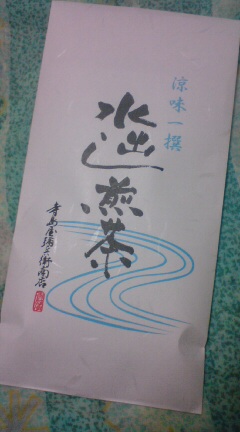 涼味一撰
水出し煎茶
寺島屋弥兵衛商店